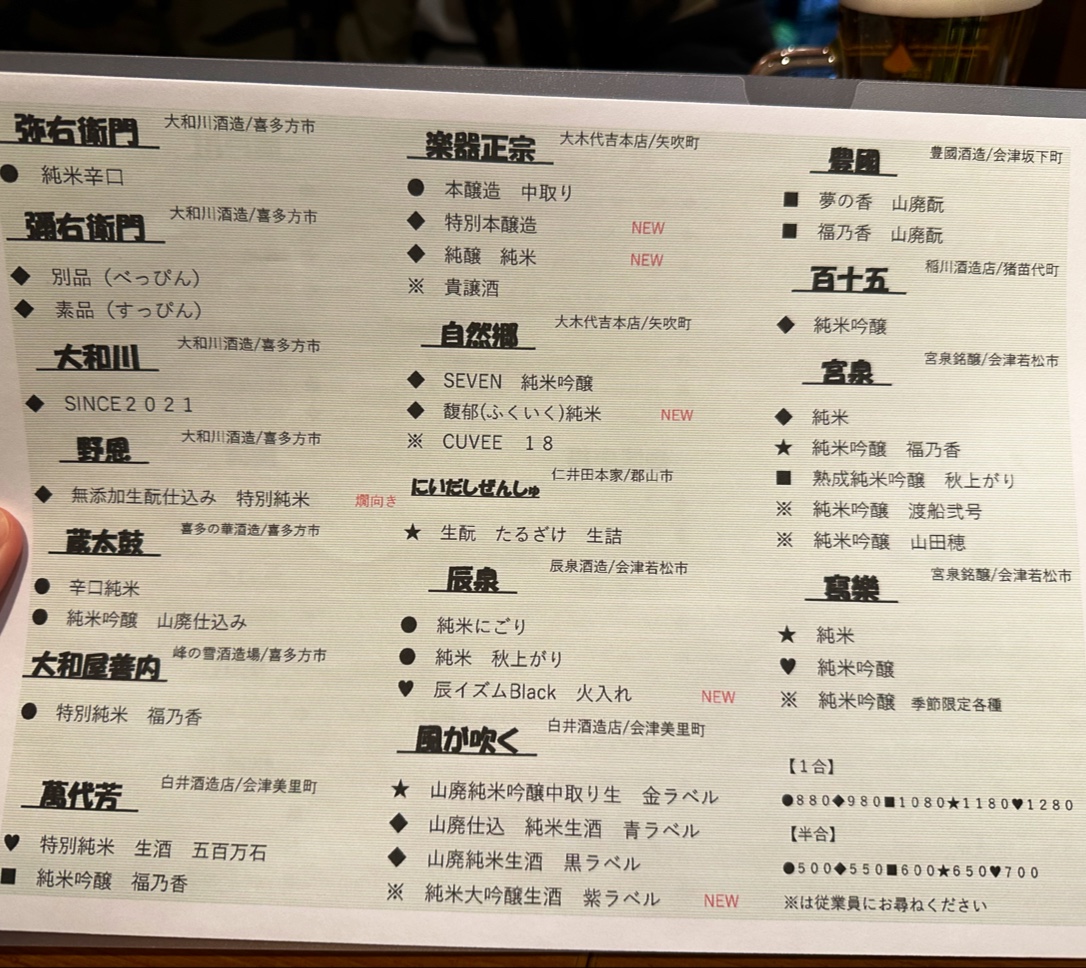 弥右衛門 大和川酒造/喜多方市
● 純米辛口
彌右衛門 大和川酒造/喜多方市
◆ 別品（べっぴん）
◆ 素品（すっぴん）
大和川 大和川酒造/喜多方市
◆ SINCE２０２１
野恩 大和川酒造/喜多方市
◆ 無添加生酛仕込み 特別純米 燗向き
蔵太鼓 喜多の華酒造/喜多方市
● 辛口純米
● 純米吟醸 山廃仕込み
大和屋善内 峰の雪酒造場/喜多方市
● 特別純米 福乃香
萬代芳 白井酒造店/会津美里町
♥ 特別純米 生酒 五百万石
■ 純米吟醸 福乃香
楽器正宗 大木代吉本店/矢吹町
● 本醸造 中取り
◆ 特別本醸造 NEW
◆ 純醸 純米 NEW
※ 貴譲酒
自然郷 大木代吉本店/矢吹町
◆ SEVEN 純米吟醸
◆ 馥郁(ふくいく)純米 NEW
※ CUVEE １８
にいだしぜんしゅ 仁井田本家/郡山市
★ 生酛 たるざけ 生詰
辰泉 辰泉酒造/会津若松市
● 純米にごり
● 純米 秋上がり
♥ 辰イズムBlack 火入れ NEW
風が吹く 白井酒造店/会津美里町
★ 山廃純米吟醸中取り生 金ラベル
◆ 山廃仕込 純米生酒 青ラベル
◆ 山廃純米生酒 黒ラベル
※ 純米大吟醸生酒 紫ラベル NEW
豊國 豊國酒造/会津坂下町
■ 夢の香 山廃酛
■ 福乃香 山廃酛
百十五 稲川酒造店/猪苗代町
◆ 純米吟醸
宮泉 宮泉銘醸/会津若松市
◆ 純米
★ 純米吟醸 福乃香
■ 熟成純米吟醸 秋上がり
※ 純米吟醸 渡船弐号
※ 純米吟醸 山田穂
寫樂 宮泉銘醸/会津若松市
★ 純米
♥ 純米吟醸
※ 純米吟醸 季節限定各種
【１合】
●８８０◆９８０■１０８０★１１８０♥１２８０
【半合】
●５００◆５５０■６００★６５０♥７００
※は従業員にお尋ねください